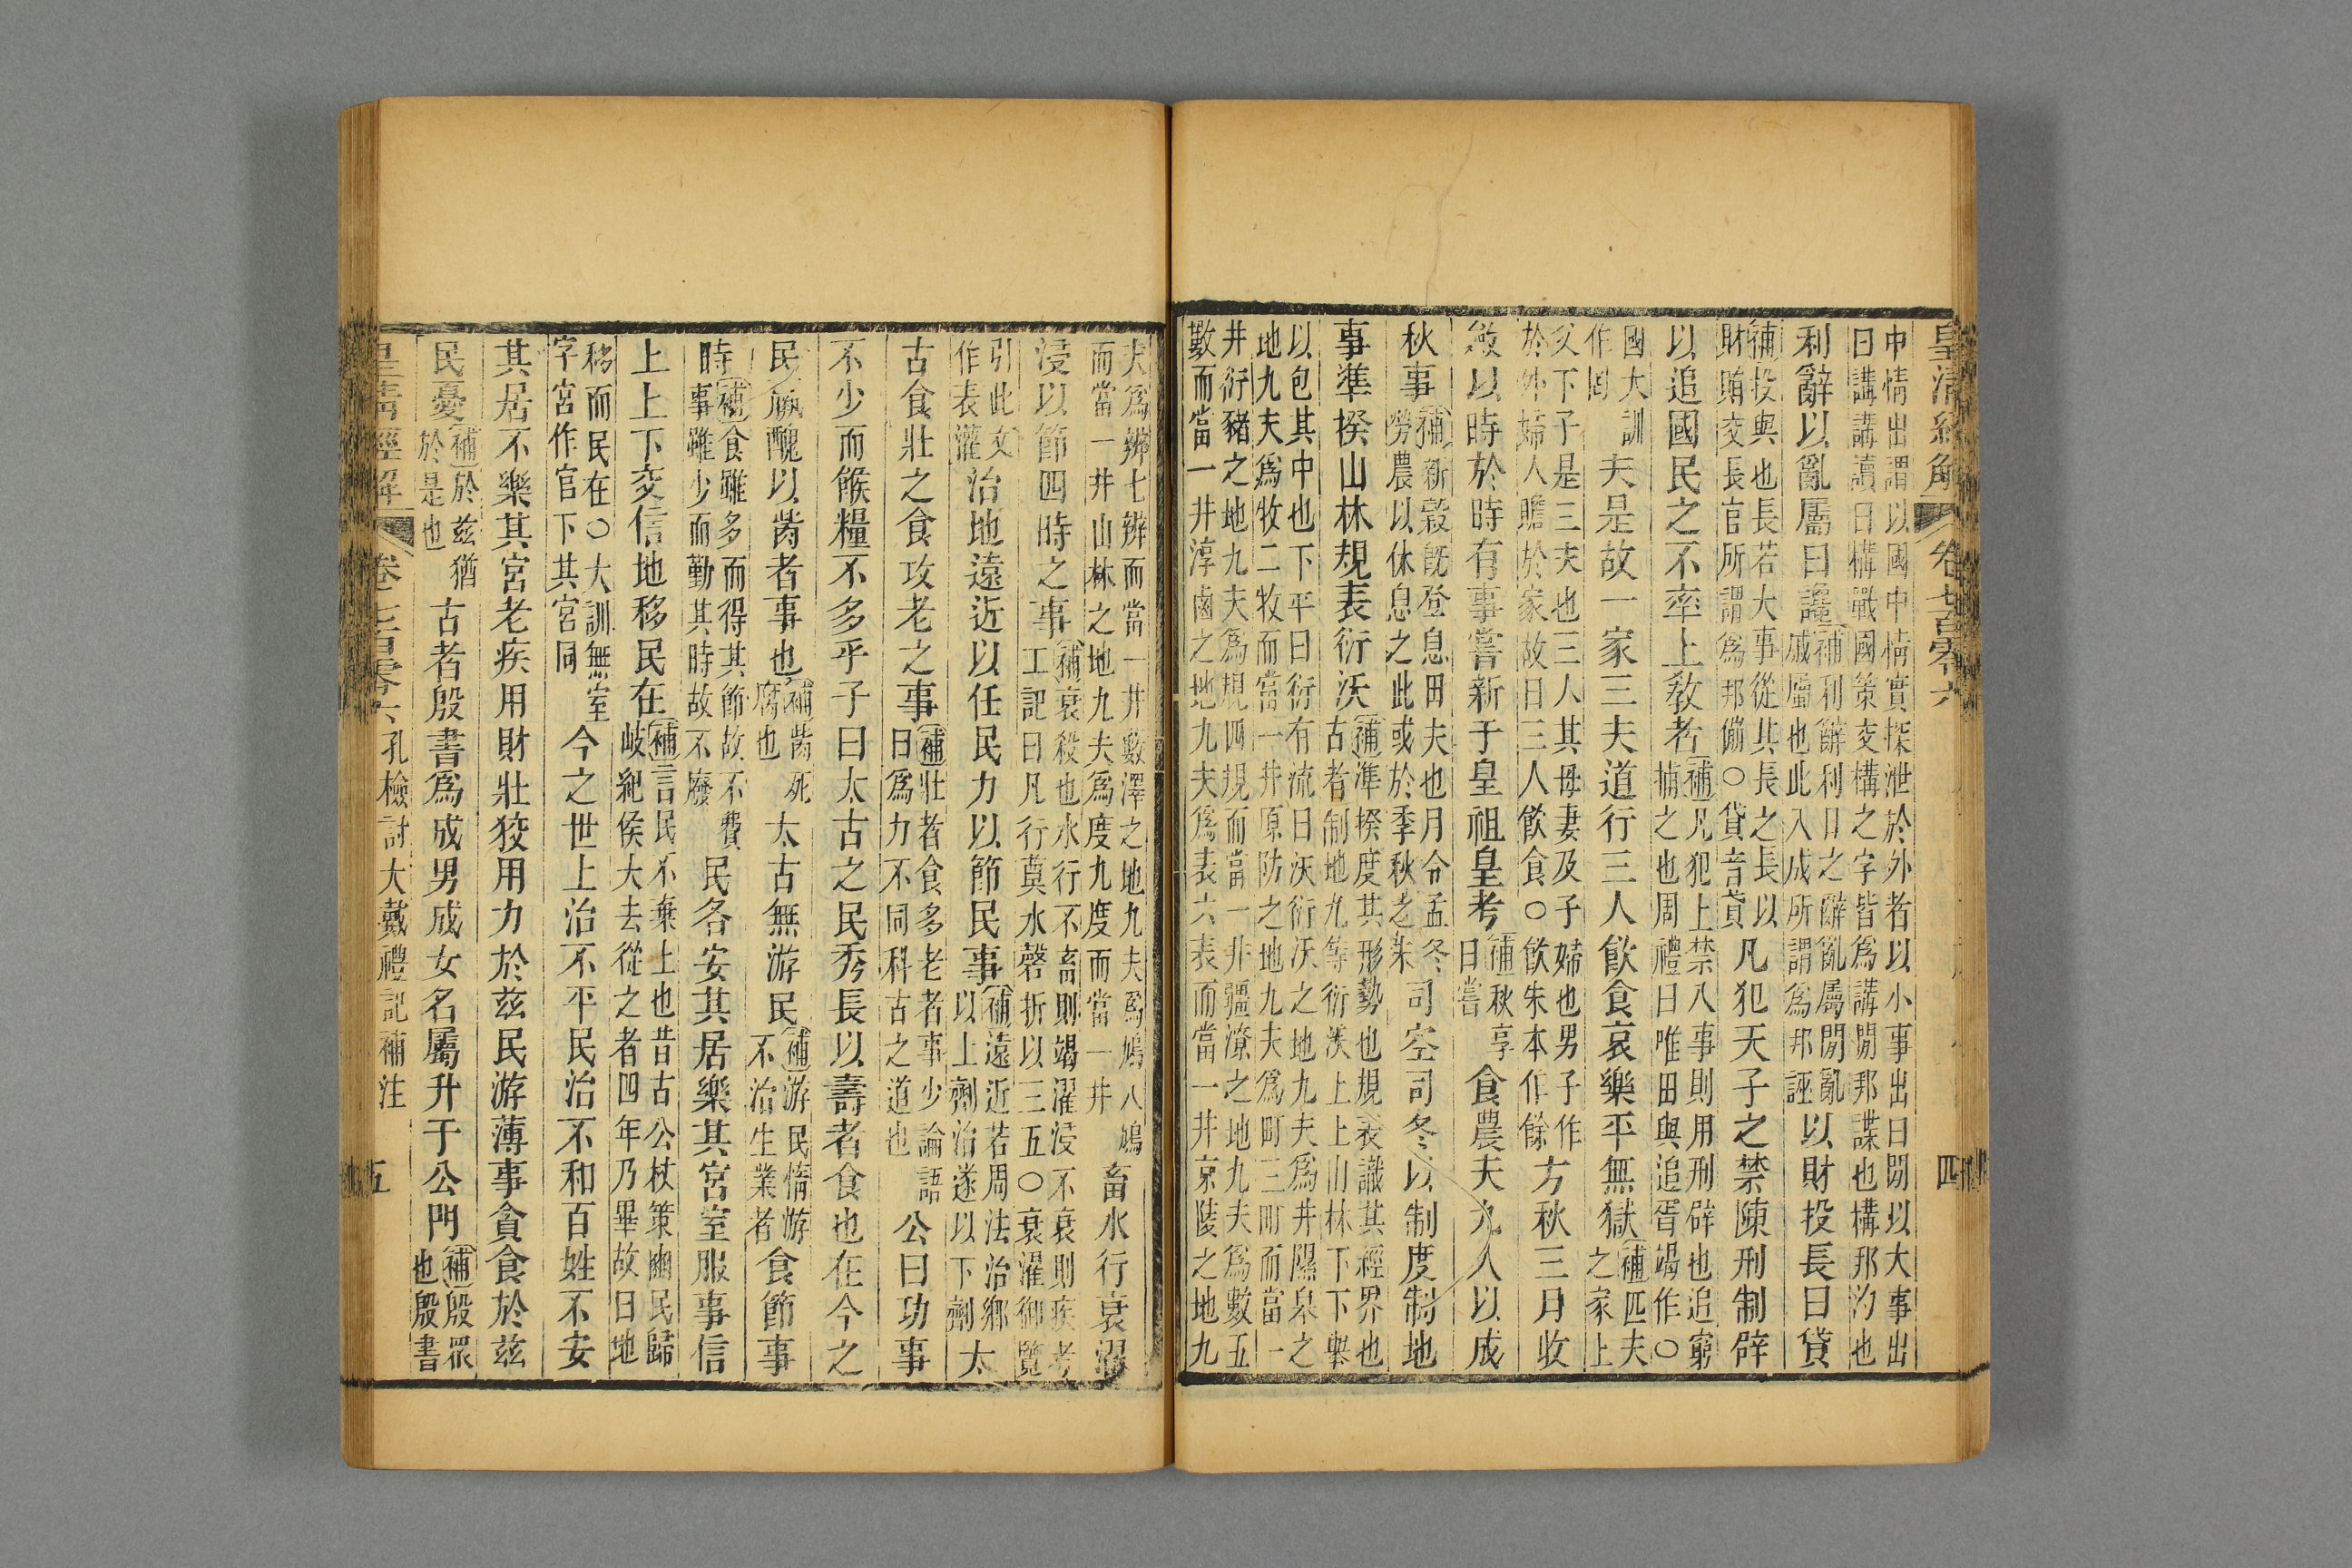 皇清經解 卷七百零六 四
中情出謂以國中情實探泄於外者以小事出曰閒以大事出
曰講講讀曰構戰國策交構之字皆爲講閒邦諜也構邦汋也
利辭以亂屬曰讒補利辭利口之辭亂屬閒亂以財投長曰貸
戚屬也此入成所謂爲邦誣
補投與也長若大事從其長之長以
財賄交長官所謂爲邦傰○貸音貣凡犯天子之禁陳刑制辟
以追國民之不率上敎者補凡犯上禁八事則用刑辟也追窮
捕之也周禮曰唯田與追胥竭作○
國大訓
作固夫是故一家三夫道行三人飲食哀樂平無獄補匹夫
之家上
父下子是三夫也三人其母妻及子婦也男子作
於外婦人贍於家故曰三人飲食○飲朱本作餘方秋三月收
斂以時於時有事嘗新于皇祖皇考補秋享
曰嘗食農夫九人以成
秋事補新穀旣登息田夫也月令孟冬
勞農以休息之此或於季秋乏未司空司冬以制度制地
事準揆山林規表衍沃補準揆度其形勢也規表識其經界也
古者制地九等衍沃上上山林下下舉
以包其中也下平曰衍有流曰沃衍沃之地九夫爲井隰皋之
地九夫爲牧二牧而當一井原防之地九夫爲町三町而當一
井衍豬之地九夫爲規四規而當一井疆潦之地九夫爲數五
數而當一井淳鹵之地九夫爲表六表而當一井京陵之地九
夫爲辨七辨而當一井數澤之地九夫爲鳩八鳩
而當一井山林之地九夫爲度九度而當一井畜水行衰濯
浸以節四時之事補衰殺也水行不畜則竭濯浸不衰則疾考
工記曰凡行奠水磬折以三五○衰濯御覽
引此文
作表灌治地遠近以任民力以節民事補遠近若周法治鄉
以上劑治遂以下劑太
古食壯之食攻老之事補壯者食多老者事少論語
曰爲力不同科古之道也公曰功事
不少而餱糧不多乎子曰太古之民秀長以壽者食也在今之
民羸醜以胔者事也補胔死
腐也太古無游民補游民惰游
不治生業者食節事
時補食雖多而得其節故不費
事雖少而勤其時故不廢民各安其居樂其宮室服事信
上上下交信地移民在補言民不棄上也昔古公杖策豳民歸
岐紀侯大去從之者四年乃畢故曰地
移而民在○大訓無室
字宮作官下其宮同今之世上治不平民治不和百姓不安
其居不樂其宮老疾用財壯狡用力於茲民游薄事貪食於茲
民憂補於茲猶
於是也古者殷書爲成男成女名屬升于公門補殷眾
也殷書
皇清經解 卷七百零六 孔檢討大戴禮記補注 五